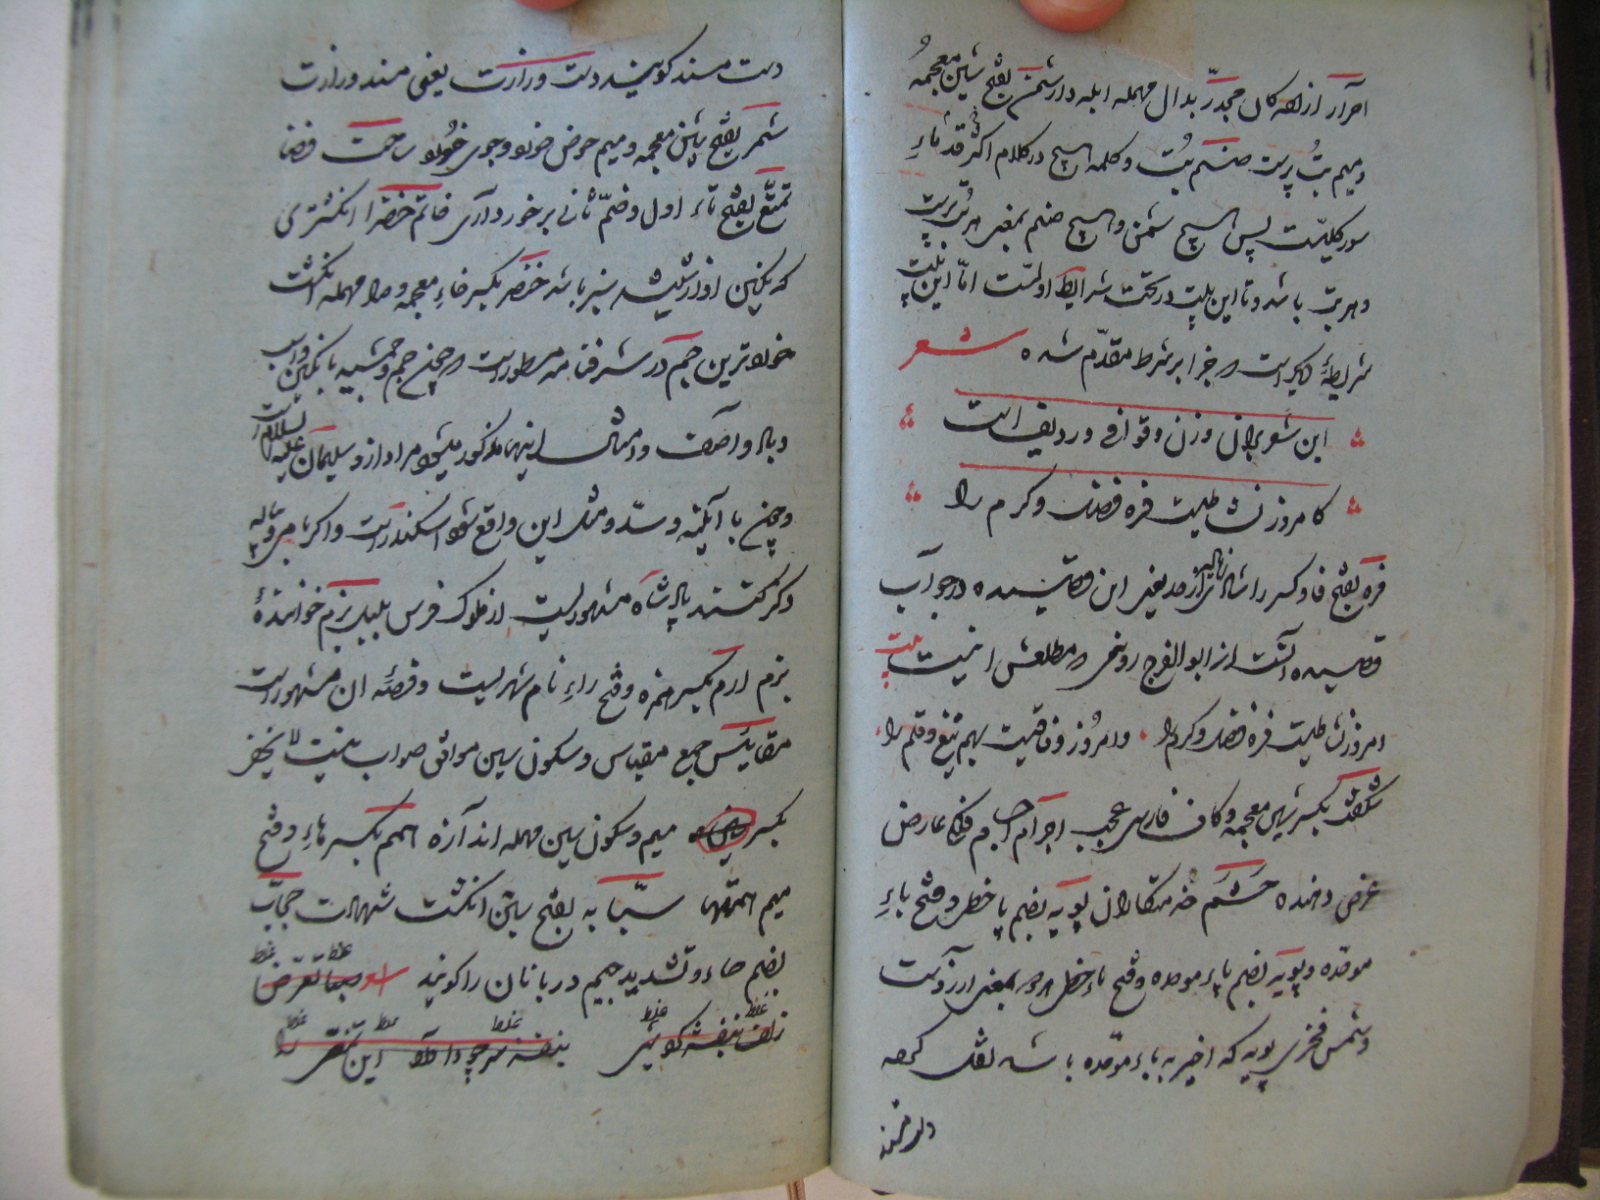 احرار ازاله کان مجدّر بدال مهمله ابله دار شمن بفتح شین معجمهُ
و میم بتُ پرست صنم بُت و کلمه اسیح در کلام اکثر قدماءِ
سور کلیّت پس اسیح شمن و اسیح صنم بمعنی هر بُت پرست
و هر بت باشد و تا این بیت در تحت شرایط اولست امّا این بیت
شریطهٔ دیگر است و جزا بر شرط مقدّم شده شعر
این شعر بران وزن و قوافی و ردیف است
کامروز نشاطیست فره فضل و کرم را
فره بفتح فا و کسر را یعنی این قصیده در جواب
قصیده است از ابو الفرج رونی و مطلعش اینست بیت
امروز نشاطیست فره فضل و کرم را و امروز وفاقیست بهم تیغ و قلم را
شگفت بکسر شین معجمه و کاف فارسی عجب اجرام اجسام فلکی عارض
عرض دهنده حشم خدمتکاران پوپه بضم پا خطی و فتح باءِ
موحده و پوپه بضم باء موحده و فتح یاء خطی بمعنی آرزوست
و شمس فخری پوپه که اخیر به باء موحده باشد نقل کرده
دست مسند گویند دست وزارت یعنی مسند وزارت
شمر بفتح شین معجمه و میم حوض خرد و جوی خورد ساحت فضا
تمتّع بفتح تاء اول و ضمّ ثانی برخورداری خاتم خضرا انگشتری
که نگین او از شیشه سبز باشد خنصر بکسر خاءِ معجمه و صاد مهمله انگشت
خردترین جم در شرفنامه مسطورست هر چند جم و جمشید با نگین و اسب
و باد و آصف و امثال اینها مذکور میشود مراد از و سلیمان علیه السلام است
و چون با آیینه و سدّ و مثل این واقع شود اسکندر است و اگر با می و پیاله
ذکر کنند پادشاه مشهوریست از ملوک فرس بلبل بزم خوانندهٔ
بزم ارم بکسر همزه و فتح راءِ نام شهریست و قصّهٔ آن مشهورست
مقاییس جمع مقیاس و سکون سین موافق صواب نیست لا یخفی
بکسر میم و سکون سین مهمله اندازه همم بکسر هاءِ و فتح
میم همتها سبّابه بفتح سین انگشت شهادت حجّاب
بضم حاء و تشدید جیم دربانان را گویند
زلف بنفشه گو